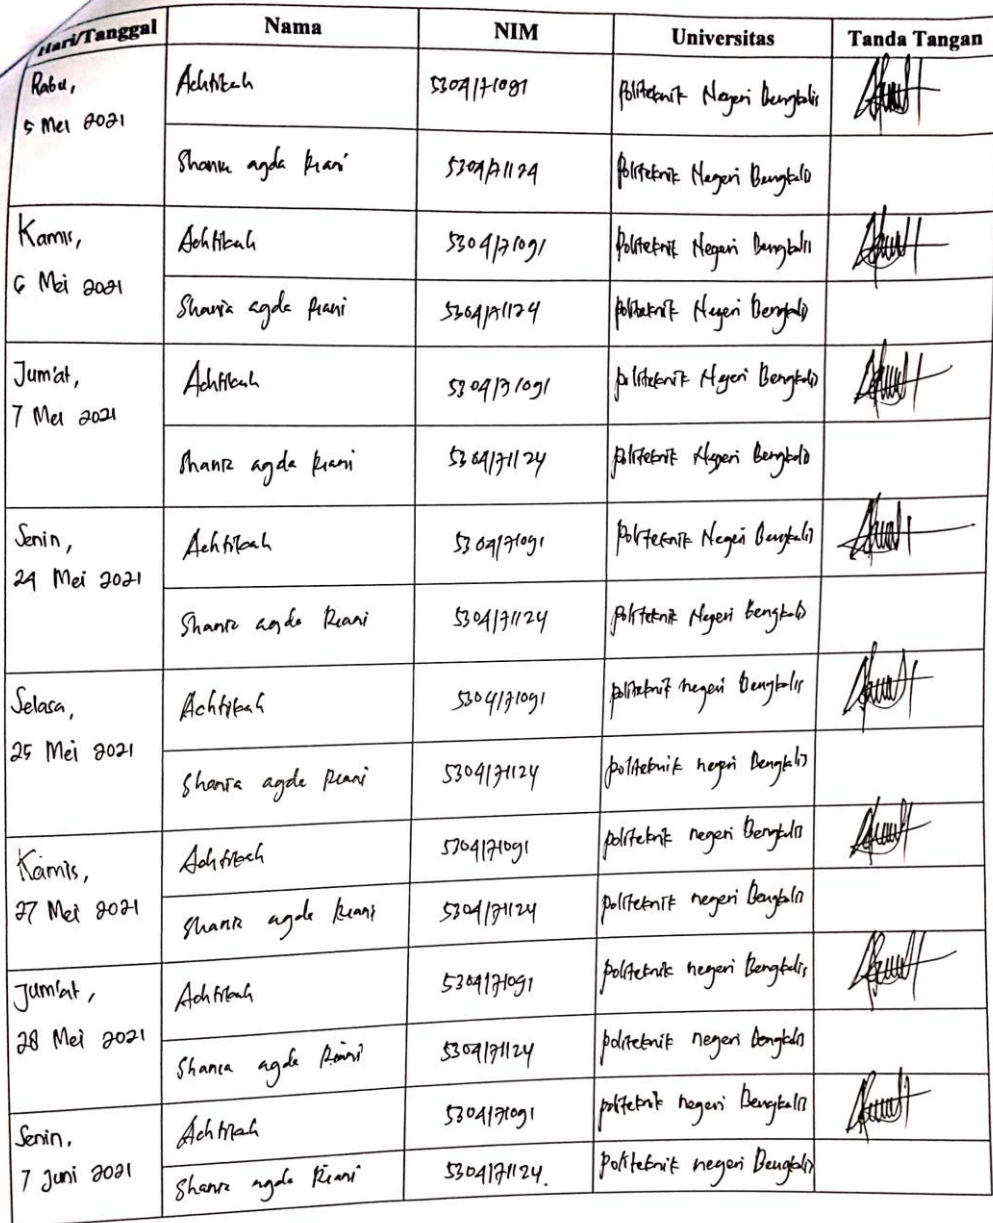 Hari/Tanggal Nama NIM Universitas Tanda Tangan
Rabu, Achtikah 5304171091 Politeknik Negeri Bengkalis
5 Mei 2021
Shania agda Kiani 5304171124 Politeknik Negeri Bengkalis
Kamis, Achtikah 5304171091 Politeknik Negeri Bengkalis
6 Mei 2021
Shania agda Kiani 5304171124 Politeknik Negeri Bengkalis
Jum'at, Achtikah 5304171091 politeknik Negeri Bengkalis
7 Mei 2021
Shania agda Kiani 5304171124 politeknik Negeri Bengkalis
Senin, Achtikah 5304171091 politeknik Negeri Bengkalis
24 Mei 2021
Shania agda Kiani 5304171124 politeknik Negeri Bengkalis
Selasa, Achtikah 5304171091 politeknik negeri Bengkalis
25 Mei 2021
Shania agda Kiani 5304171124 politeknik negeri Bengkalis
Kamis, Achtikah 5304171091 politeknik negeri Bengkalis
27 Mei 2021
Shania agda Kiani 5304171124 politeknik negeri Bengkalis
Jum'at, Achtikah 5304171091 politeknik negeri Bengkalis
28 Mei 2021
Shania agda Kiani 5304171124 politeknik negeri Bengkalis
Senin, Achtikah 5304171091 politeknik negeri Bengkalis
7 Juni 2021
Shania agda Kiani 5304171124. politeknik negeri Bengkalis